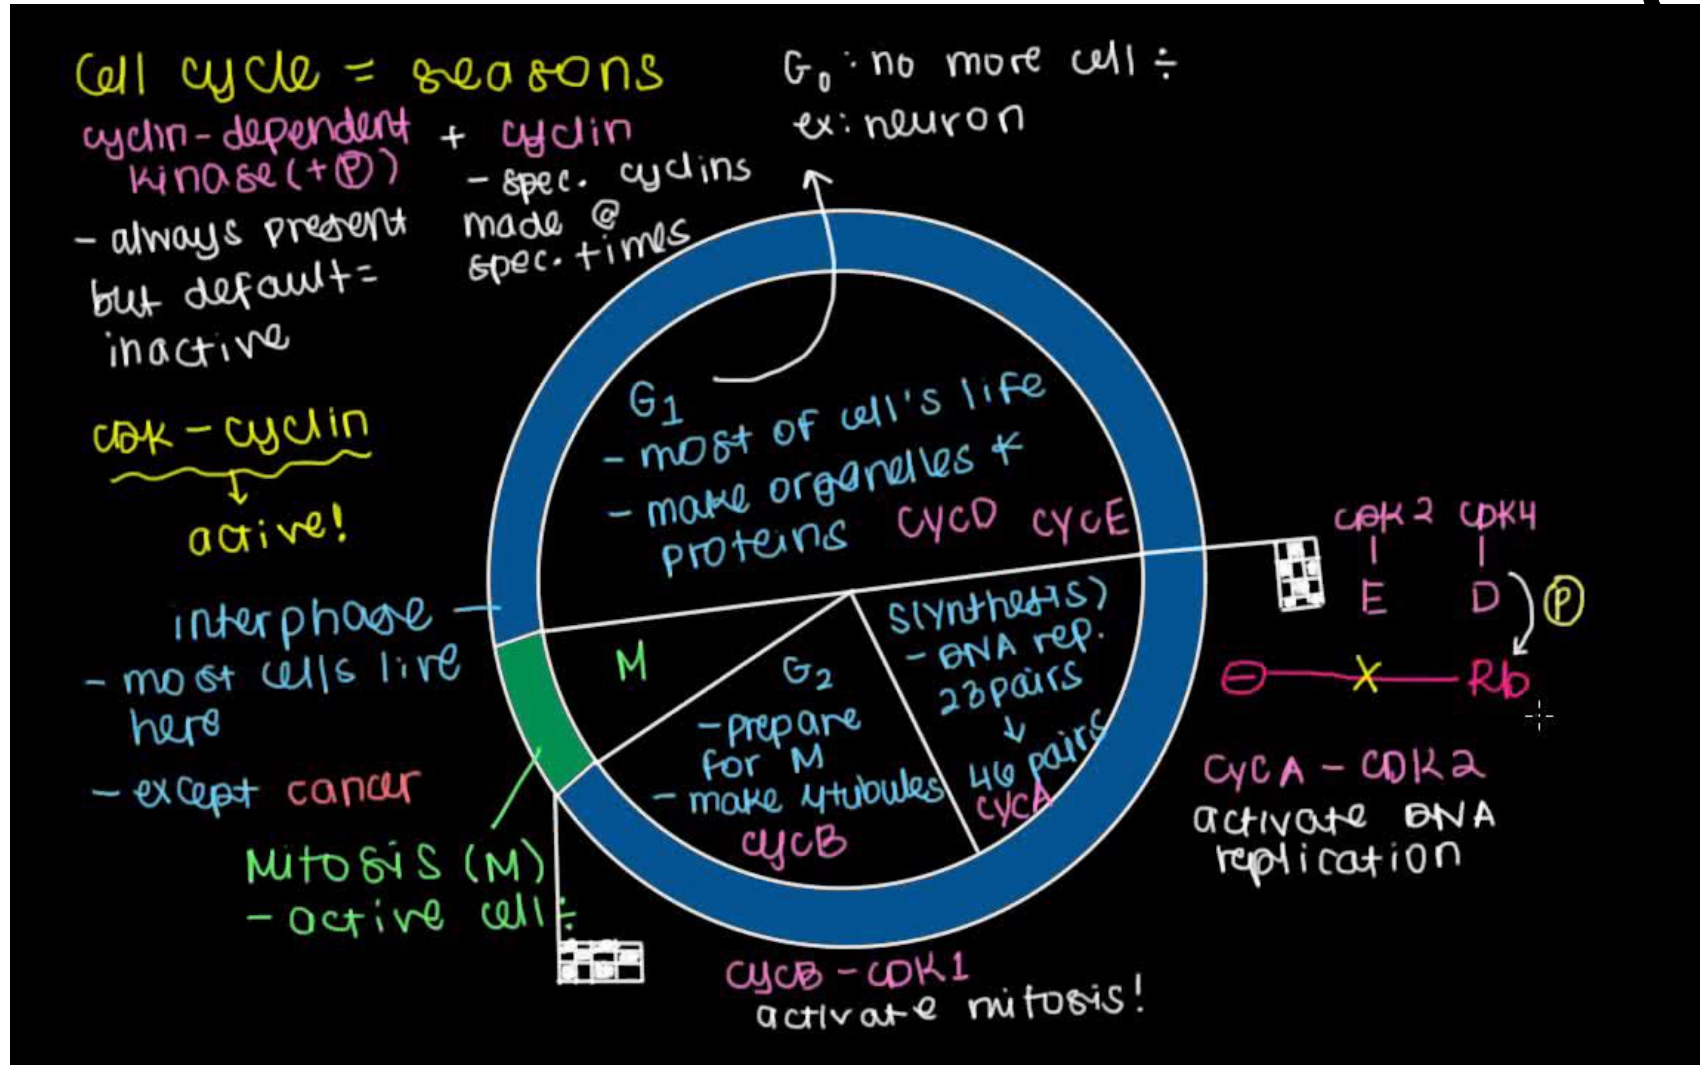 Cell cycle = seasons
cyclin-dependent + cyclin
kinase (+ P)
- always present
but default =
inactive
- spec. cyclins
made @
spec. times
G0 : no more cell ÷
ex: neuron
CDK - cyclin
active!
interphase
- most cells live
here
- except cancer
Mitosis (M)
- active cell ÷
G1
- most of cell's life
- make organelles &
proteins
CYCD CYCE
M
G2
- prepare
for M
- make μtubules
CYCB
S(ynthesis)
- DNA rep.
23 pairs
46 pairs
CYCA
CDK2 CDK4
E D
P
⊖ X Rb
CYCA - CDK2
activate DNA
replication
CYCB - CDK1
activate mitosis!